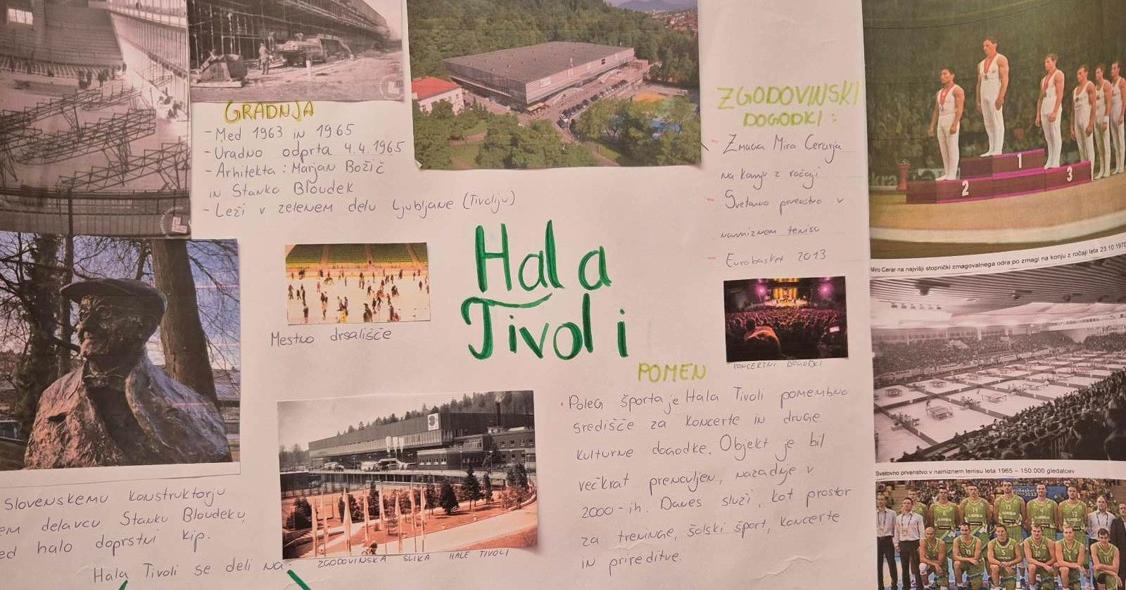 GRADNJA
- Med 1963 in 1965
- Uradno odprta 4.4.1965
- Arhitekta: Marjan Božič
in Stanko Bloudek
- Leži v zelenem delu Ljubljane (Tivoliju)
ZGODOVINSKI
DOGODKI:
- Zmaga Mira Cerarja
na konju z ročaji
- Svetovno prvenstvo v
namiznem tenisu
- Eurobasket 2013
Miro Cerar na najvišji stopnički zmagovalnega odra po zmagi na konju z ročaji leta 23.10 1970
Hala
Tivoli
Mestno drsališče
KONCERTNI DOGODKI
POMEN
• Poleg športa je Hala Tivoli pomembno
središče za koncerte in druge
kulturne dogodke. Objekt je bil
večkrat prenovljen, nazadnje v
2000-ih. Danes služi kot prostor
za treninge, šolski šport, koncerte
in prireditve.
Svetovno prvenstvo v namiznem tenisu leta 1965 – 150.000 gledalcev
Slovenskemu konstruktorju
delavcu Stanku Bloudeku
halo doprsni kip.
ZGODOVINSKA SLIKA HALE TIVOLI
Hala Tivoli se deli na: